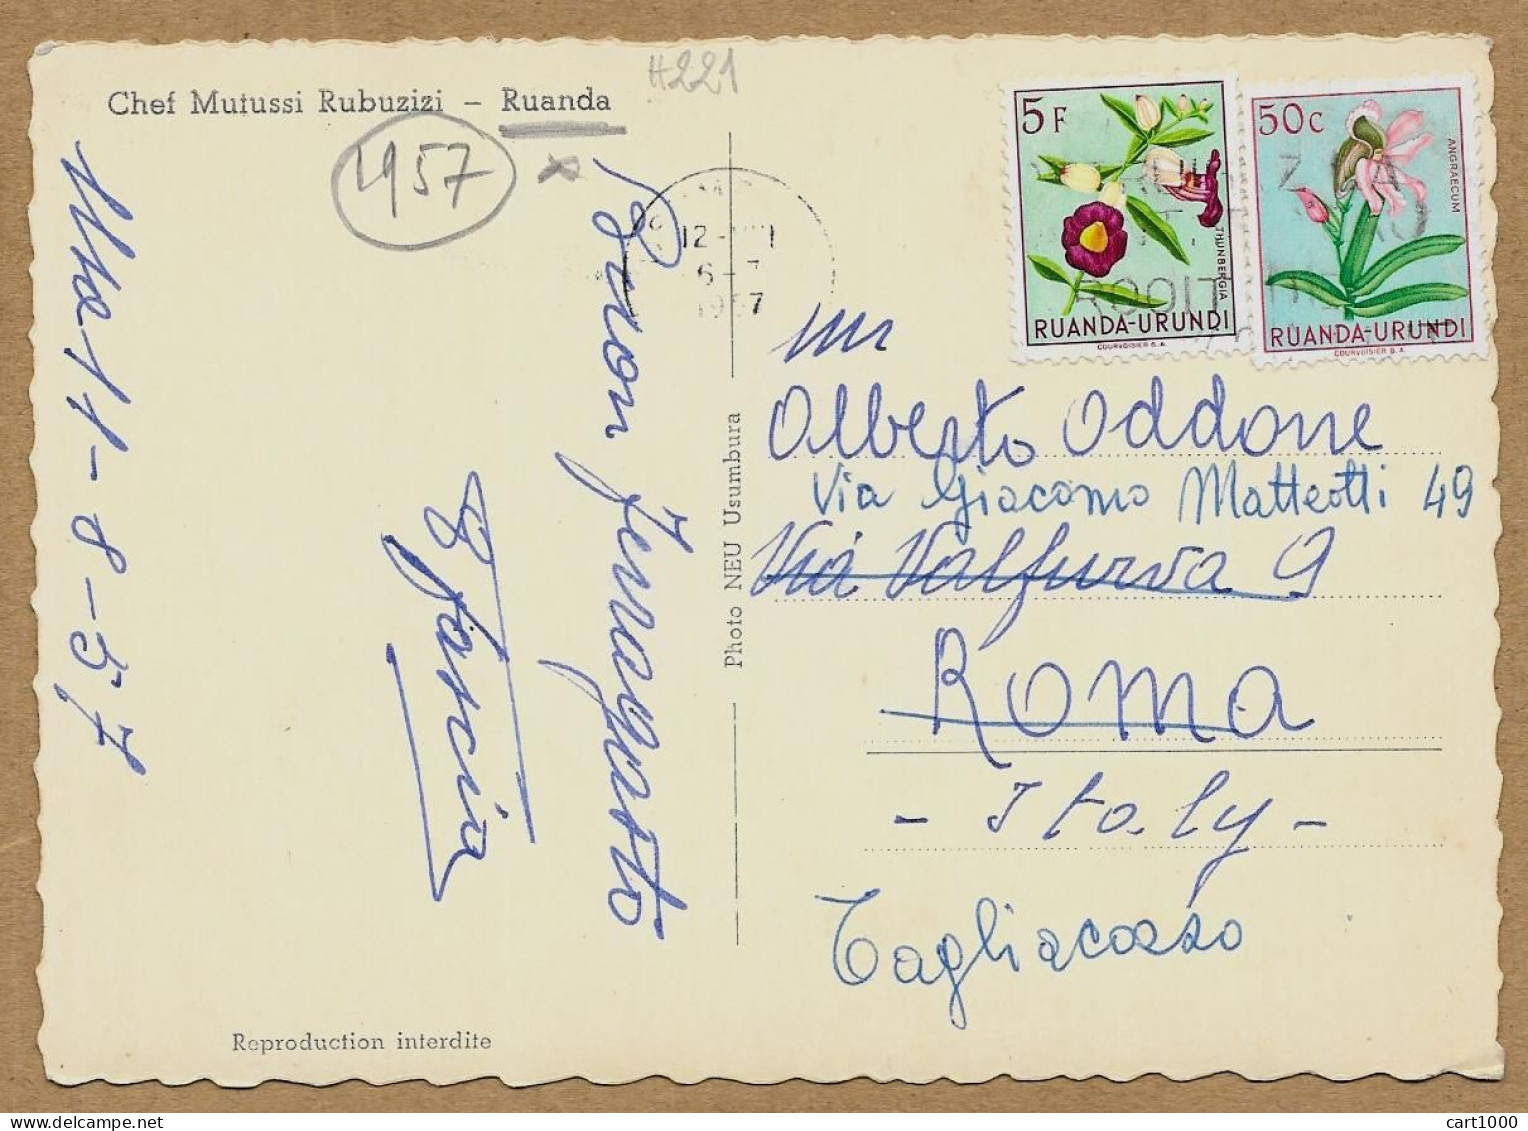 H221
Chef Mututssi Rubuzizi – Ruanda
1957
11-8-57
Buon ferragosto
Photo NEU Usumbura
12-VIII
1957
5 F
THUNBERGIA
RUANDA-URUNDI
COURVOISIER S.A.
50 C
ANGRAECUM
RUANDA-URUNDI
COURVOISIER S.A.
Alberto Oddone
Via Giacomo Matteotti 49
Via Valfurva 9
ROMA
- Italy -
Tagliacozzo
Reproduction interdite
cart1000